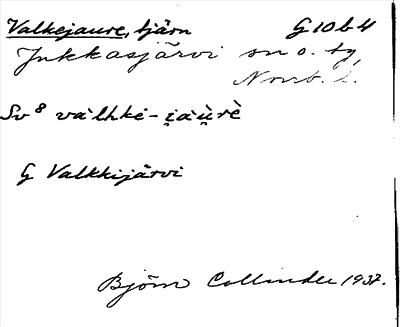 Valkejaure, tjärn G 10 b 4
Jukkasjärvi sn o. tg,
Norrb. l.
Sv 8 va'lhkè-i̯a'ùrè
G Valkkijärvi
Björn Collinder 1937.